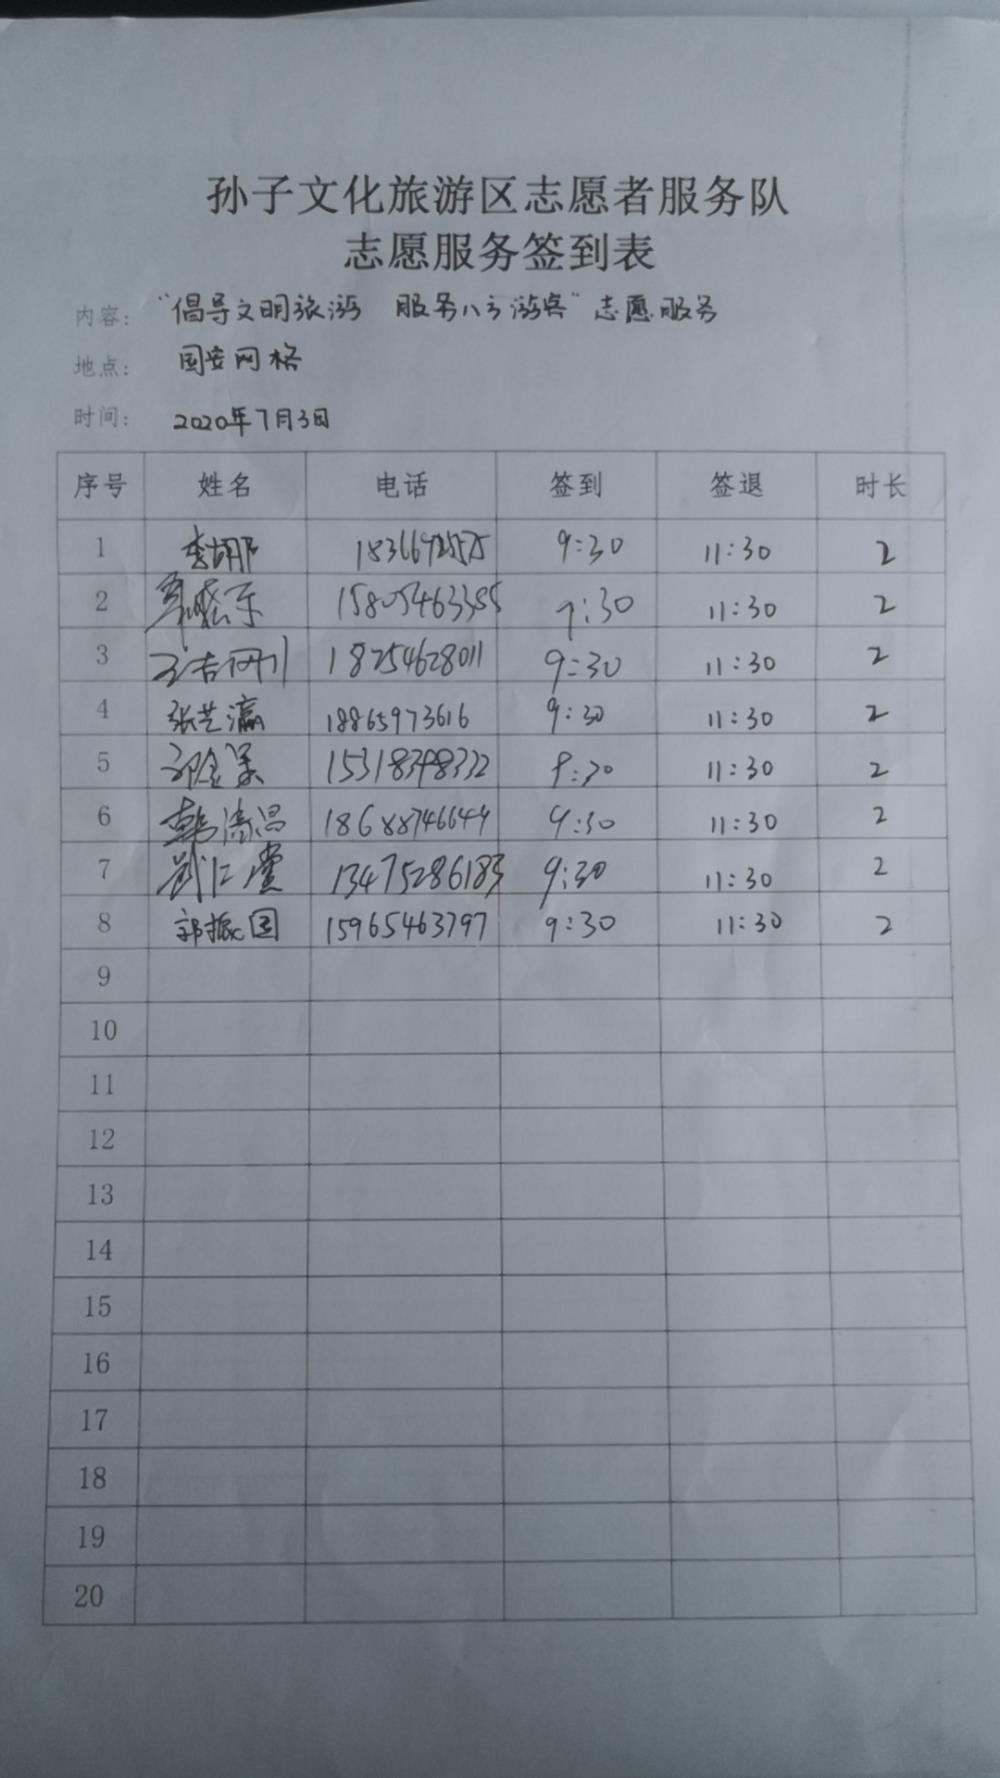 孙子文化旅游区志愿者服务队
志愿服务签到表
内容： “倡导文明旅游 服务八方游客”志愿服务
地点： 国安网格
时间： 2020年7月3日
序号 姓名 电话 签到 签退 时长
1 李娜 9:30 11:30 2
2 9:30 11:30 2
3 18254628011 9:30 11:30 2
4 张芝瀛 18865973616 9:30 11:30 2
5 15318398332 9:30 11:30 2
6 韩清昌 18688746644 9:30 11:30 2
7 刘仁堂 13475286183 9:30 11:30 2
8 郭振国 15965463797 9:30 11:30 2
9
10
11
12
13
14
15
16
17
18
19
20